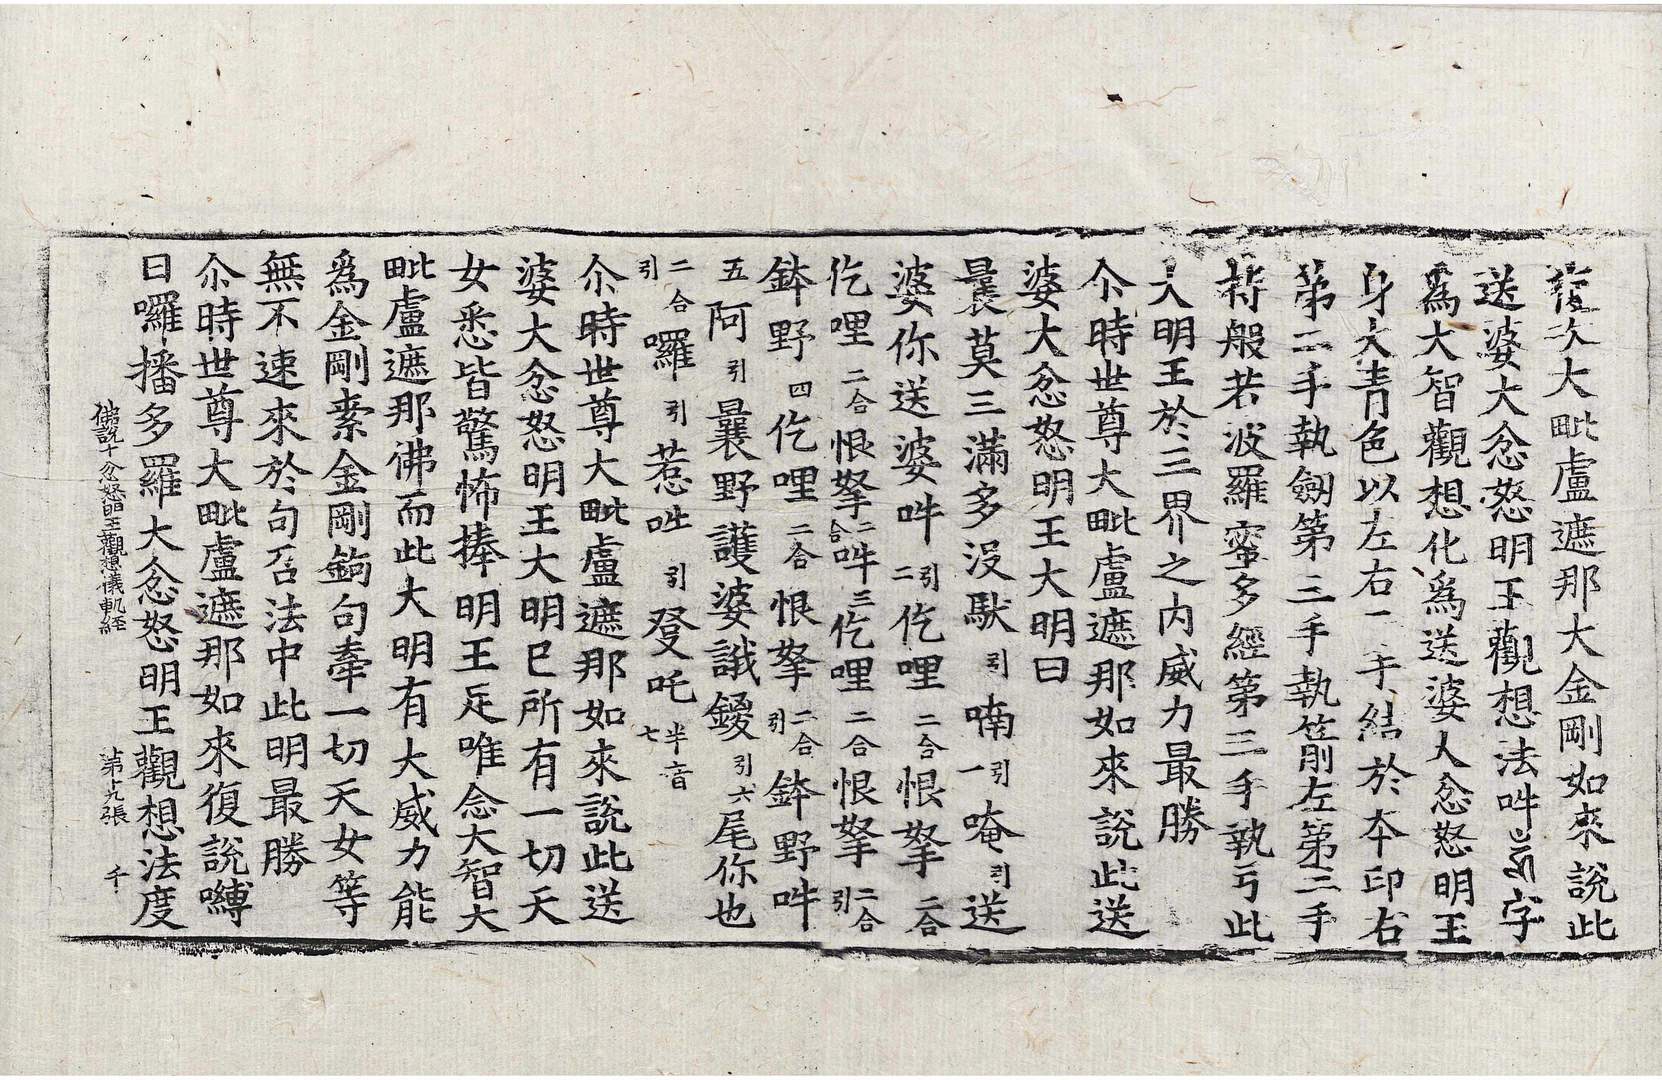 復次大毗盧遮那大金剛如來說此
送婆大忿怒明王觀想法吽𑖮𑖳𑖽字
爲大智觀想化爲送婆大忿怒明王
身大青色以左右二手結於本印右
第二手執劒第三手執箭左第二手
持般若波羅蜜多經第三手執弓此
大明王於三界之內威力最勝
尒時世尊大毗盧遮那如來說此送
婆大忿怒明王大明曰
曩莫三滿多沒馱引喃引一唵引送
婆你送婆吽引二仡哩二合恨拏二合
仡哩二合恨拏二合吽三仡哩二合恨拏二合引
鉢野四仡哩二合恨拏二合引鉢野吽
五阿引曩野護婆誐鑁引六尾你也
二合引囉引惹吽引登吒半音七
尒時世尊大毗盧遮那如來說此送
婆大忿怒明王大明已所有一切天
女悉皆驚怖捧明王足唯念大智大
毗盧遮那佛而此大明有大威力能
爲金剛索金剛鉤句牽一切天女等
無不速來於句召法中此明最勝
尒時世尊大毗盧遮那如來復說嚩
日囉播多羅大忿怒明王觀想法度
佛說十忿怒明王觀想儀軌經 第十九張 千